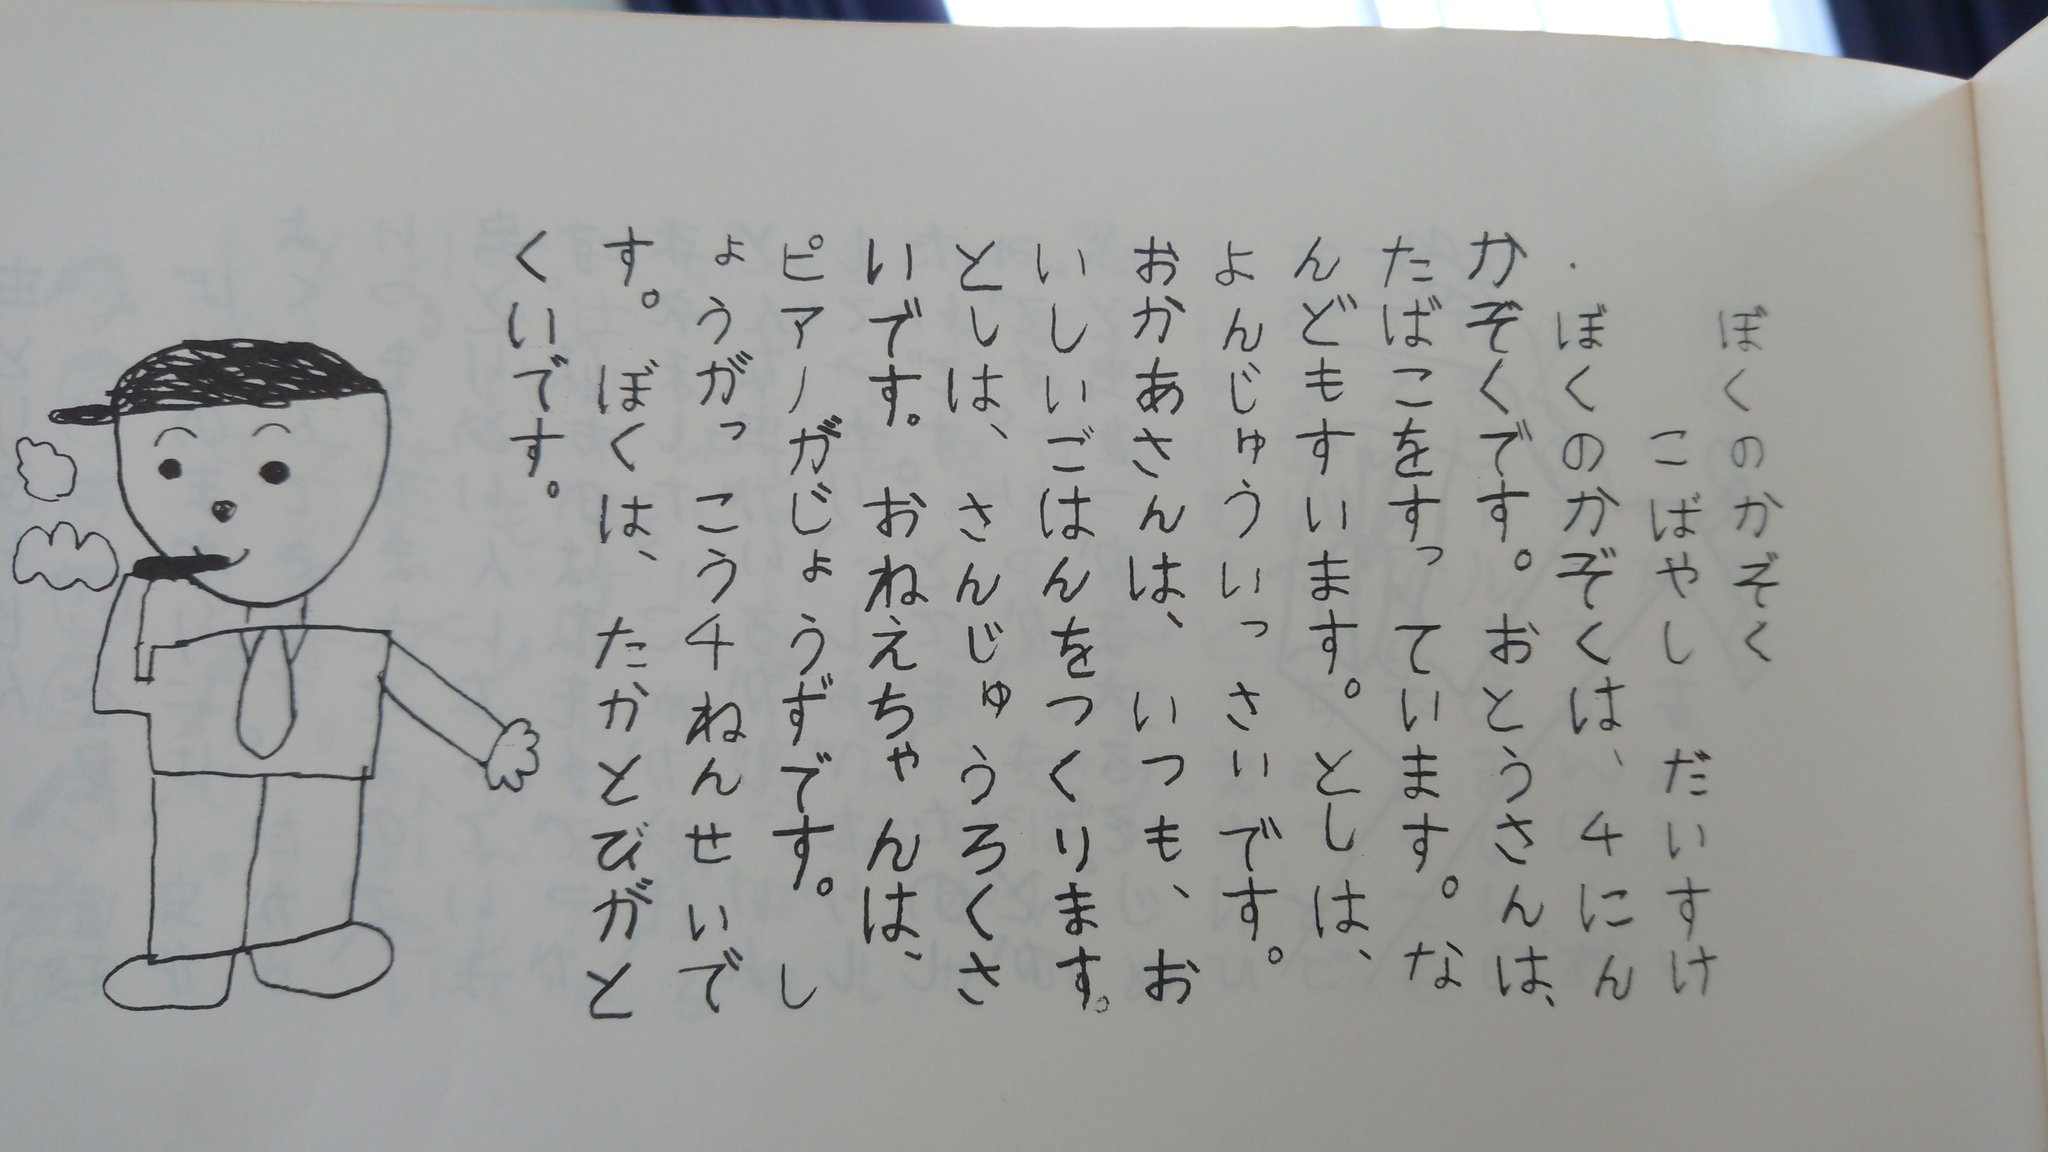 ぼくのかぞく
こばやし だいすけ
ぼくのかぞくは、4にん
かぞくです。おとうさんは、
たばこをすっています。な
んどもすいます。としは、
よんじゅういっさいです。
おかあさんは、いつも、お
いしいごはんをつくります。
としは、さんじゅうろくさ
いです。おねえちゃんは、
ピアノがじょうずです。し
ょうがっこう4ねんせいで
す。ぼくは、たかとびがと
くいです。